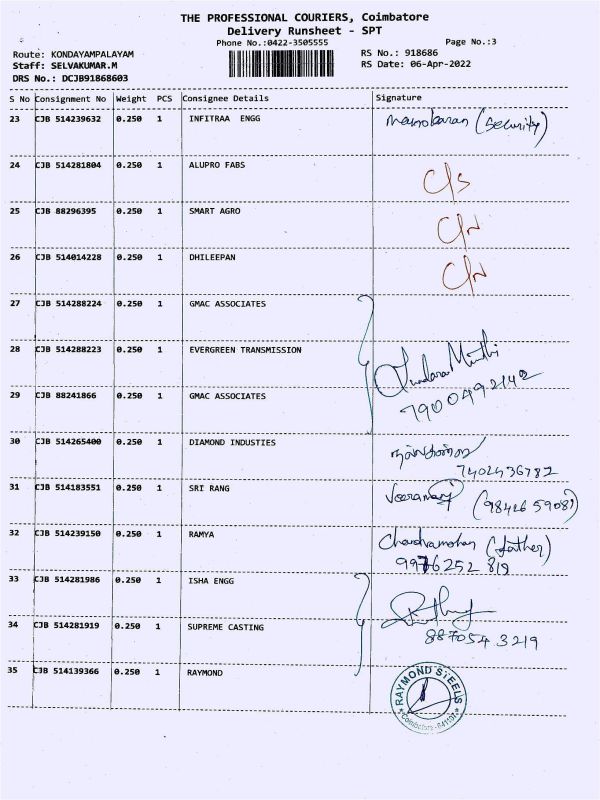 THE PROFESSIONAL COURIERS, Coimbatore
Delivery Runsheet - SPT
Phone No.:0422-3505555 Page No.:3
Route: KONDAYAMPALAYAM RS No.: 918686
Staff: SELVAKUMAR.M RS Date: 06-Apr-2022
DRS No.: DCJB91868603
S No Consignment No Weight PCS Consignee Details Signature
23 CJB 514239632 0.250 1 INFITRAA ENGG Manokaran (Security)
24 CJB 514281804 0.250 1 ALUPRO FABS C/S
25 CJB 88296395 0.250 1 SMART AGRO C/N
26 CJB 514014228 0.250 1 DHILEEPAN C/N
27 CJB 514288224 0.250 1 GMAC ASSOCIATES
28 CJB 514288223 0.250 1 EVERGREEN TRANSMISSION
29 CJB 88241866 0.250 1 GMAC ASSOCIATES 7900492142
30 CJB 514265400 0.250 1 DIAMOND INDUSTIES
7402436782
31 CJB 514183551 0.250 1 SRI RANG (9842659087)
32 CJB 514239150 0.250 1 RAMYA Chandramohan (father)
9976252819
33 CJB 514281986 0.250 1 ISHA ENGG
34 CJB 514281919 0.250 1 SUPREME CASTING 8870543219
35 CJB 514139366 0.250 1 RAYMOND RAYMOND STEELS